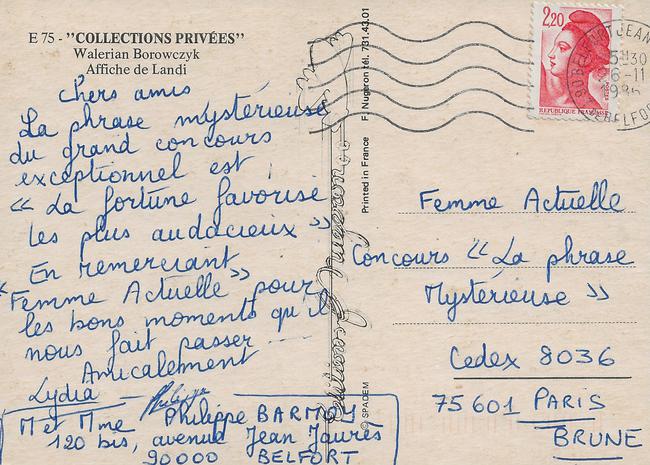 E 75 - "COLLECTIONS PRIVÉES"
Walerian Borowczyk
Affiche de Landi
Chers amis
La phrase mystérieuse
du grand concours
exceptionnel est :
« La fortune favorise
les plus audacieux »
En remerciant
"Femme Actuelle" pour
les bons moments qu'il
nous fait passer ...
Amicalement
Lydia - Philippe
M et Mme Philippe
120 bis, avenue Jean Jaurès
90000 BELFORT
Editions F. Nugeron
Printed in France F. Nugeron tél. 731.43.01
© SPADEM
2,20
REPUBLIQUE FRANÇAISE
15H30
6-11
90 BELFORT
Femme Actuelle
Concours « La phrase
Mystérieuse »
Cedex 8036
75601 PARIS
BRUNE